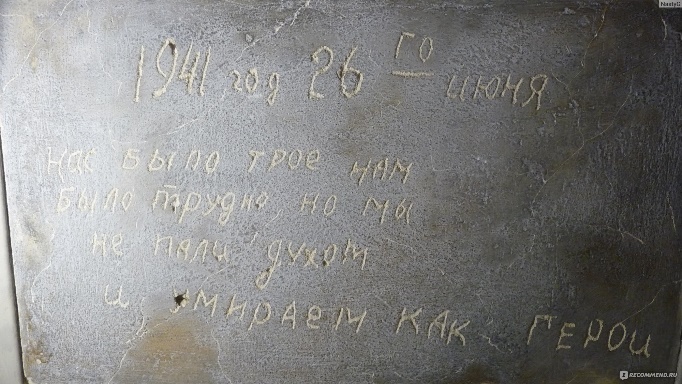 NastyG
1941 год 26 го июня
нас было трое нам
было трудно, но мы
не пали духом
и умираем как герои
RECOMMEND.RU